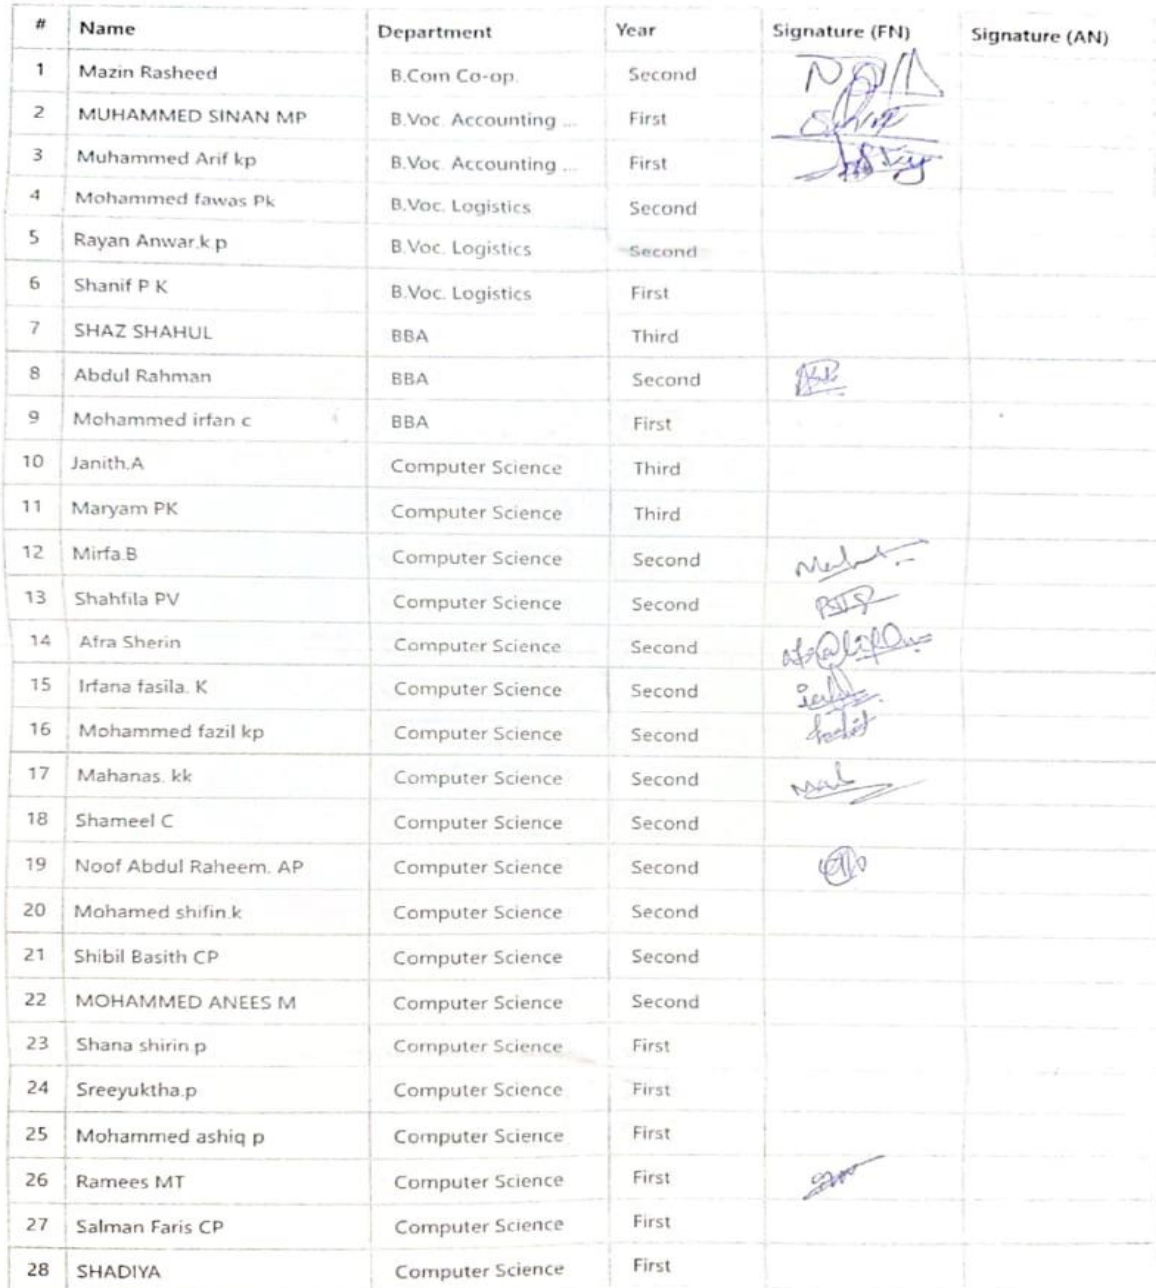 # Name Department Year Signature (FN) Signature (AN)
1 Mazin Rasheed B.Com Co-op. Second
2 MUHAMMED SINAN MP B.Voc. Accounting ... First
3 Muhammed Arif kp B.Voc. Accounting ... First
4 Mohammed fawas Pk B.Voc. Logistics Second
5 Rayan Anwar.k p B.Voc. Logistics Second
6 Shanif P K B.Voc. Logistics First
7 SHAZ SHAHUL BBA Third
8 Abdul Rahman BBA Second
9 Mohammed irfan c BBA First
10 Janith.A Computer Science Third
11 Maryam PK Computer Science Third
12 Mirfa.B Computer Science Second
13 Shahfila PV Computer Science Second
14 Afra Sherin Computer Science Second
15 Irfana fasila. K Computer Science Second
16 Mohammed fazil kp Computer Science Second
17 Mahanas. kk Computer Science Second
18 Shameel C Computer Science Second
19 Noof Abdul Raheem. AP Computer Science Second
20 Mohamed shifin.k Computer Science Second
21 Shibil Basith CP Computer Science Second
22 MOHAMMED ANEES M Computer Science Second
23 Shana shirin.p Computer Science First
24 Sreeyuktha.p Computer Science First
25 Mohammed ashiq p Computer Science First
26 Ramees MT Computer Science First
27 Salman Faris CP Computer Science First
28 SHADIYA Computer Science First